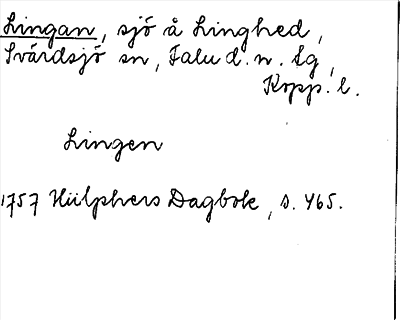 Lingan, sjö å Linghed,
Svärdsjö sn, Falu d. n. lg,
Kopp. l.
Lingen
1757 Hülphers Dagbok, s. 465.